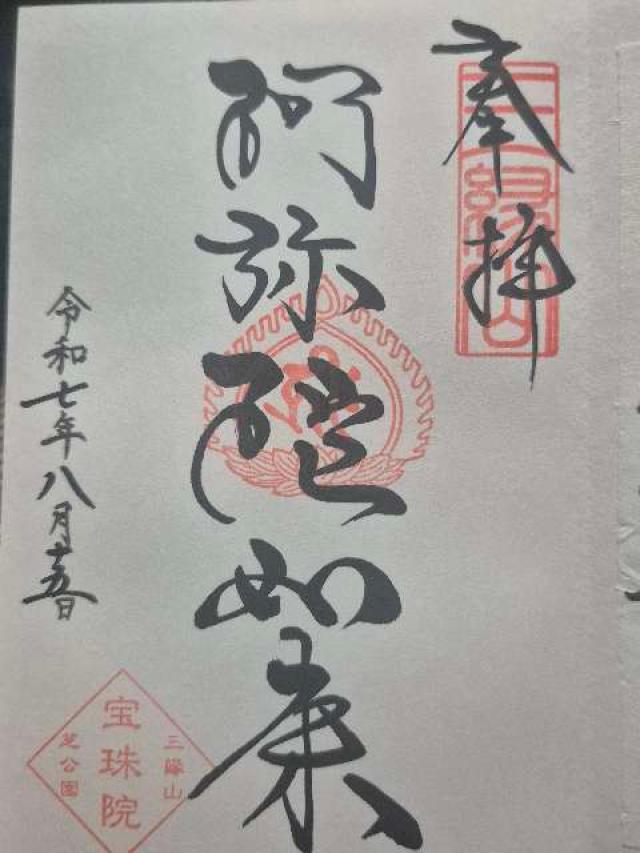 奉拝
三縁山
阿弥陀如来
令和七年八月十五日
三縁山
宝珠院
芝公園